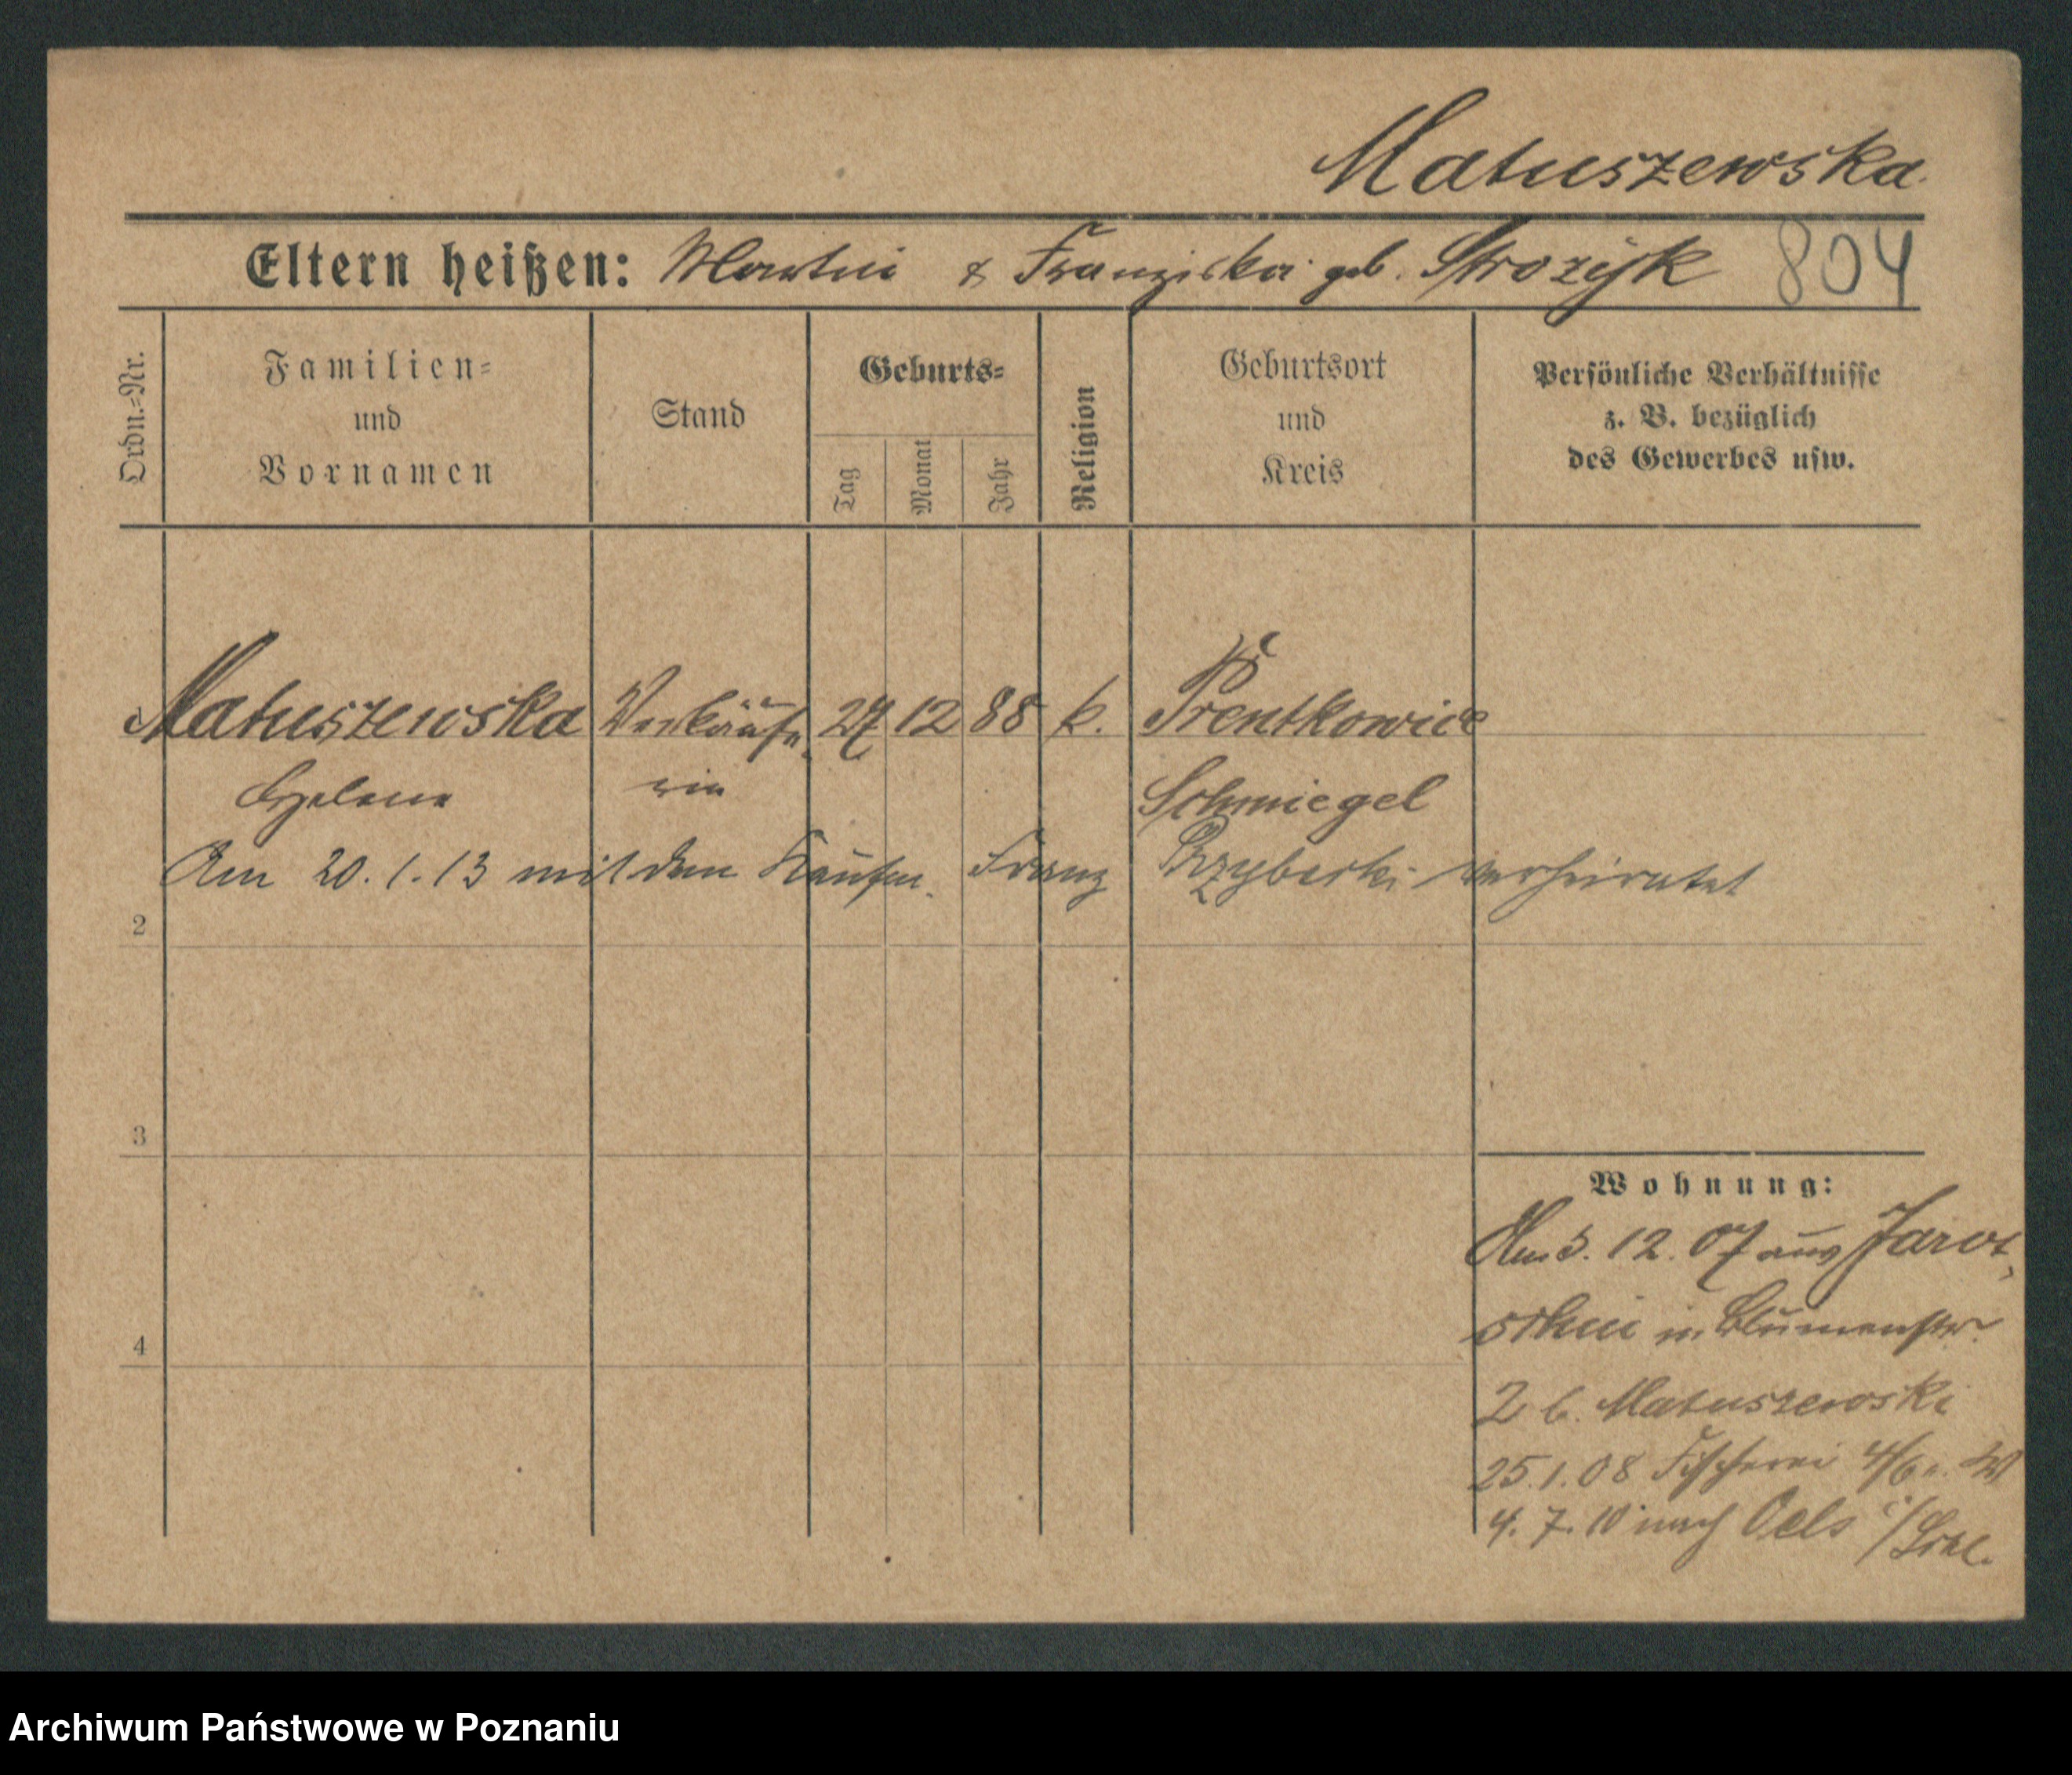 Matuszewska.
Eltern heißen: Martin & Franziska geb. Strozyk 804
Ordn.-Nr.
Familien- und Vornamen
Stand
Geburts-
Tag
Monat
Jahr
Religion
Geburtsort und Kreis
Persönliche Verhältnisse
z. B. bezüglich
des Gewerbes usw.
Matuszewska Verkäufe 27 12 88 k. Prentkowice
Helene rin Schmiegel
Am 20.1.13 mit dem Kaufm. Franz verheiratet
2
3
4
Wohnung:
Am 3. 12. 07 aus Jarot
schin n. Blumenstr.
2 b. Matuszewski
25.1.08 Fischerei
4. 7. 10 nach Oels i/
Archiwum Państwowe w Poznaniu